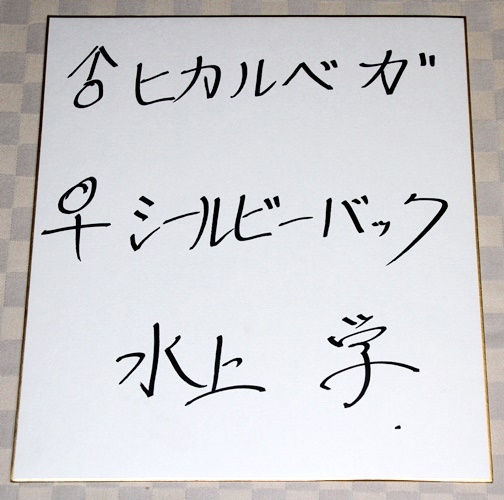 ♂ヒカルベガ
♀シールビーバック
水上 学